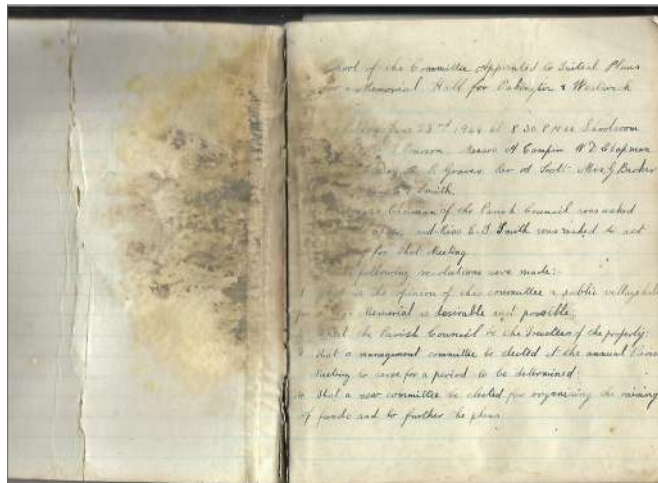 of the Committee Appointed to Initial Plans
for a Memorial Hall for Oakington & Westwick
June 23rd 1944 at 8.30 P.M. in Schoolroom
Messrs A Campin W D Chapman
Graves Rev Scott Mrs G Barker
Smith.
Chairman of the Parish Council was asked
and Miss E. J. Smith was asked to act
for that Meeting
following resolutions were made:-
is the opinion of this committee a public village hall
Memorial is desirable and possible.
that the Parish Council be the Trustees of the property:
that a management committee be elected at the annual Parish
Meeting to serve for a period to be determined:
That a new committee be elected for organising the raising
of funds and to further the plans